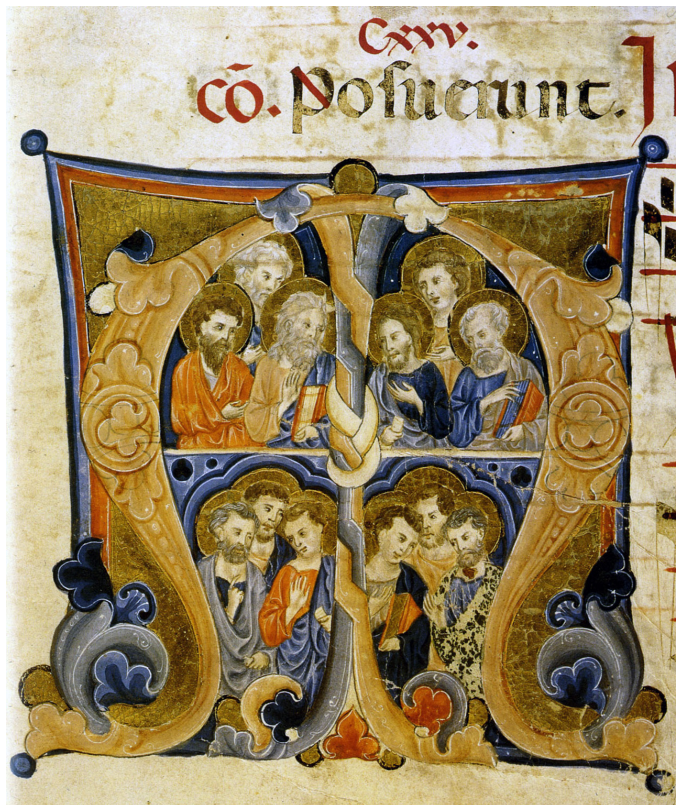 Cxxv.
cō. Posuerunt. I